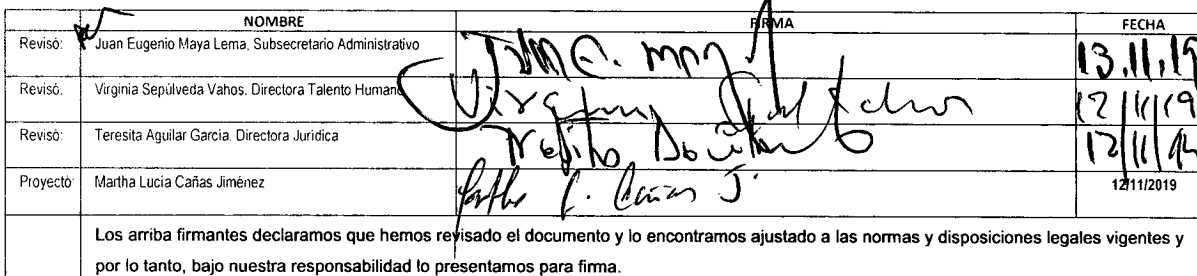 NOMBRE FIRMA FECHA
Revisó: Juan Eugenio Maya Lema, Subsecretario Administrativo 13.11.19
Revisó. Virginia Sepúlveda Vahos. Directora Talento Humano 12/11/19
Revisó: Teresita Aguilar García. Directora Jurídica 12/11/
Proyectó: Martha Lucía Cañas Jiménez Cañas J. 12/11/2019
Los arriba firmantes declaramos que hemos revisado el documento y lo encontramos ajustado a las normas y disposiciones legales vigentes y
por lo tanto, bajo nuestra responsabilidad lo presentamos para firma.